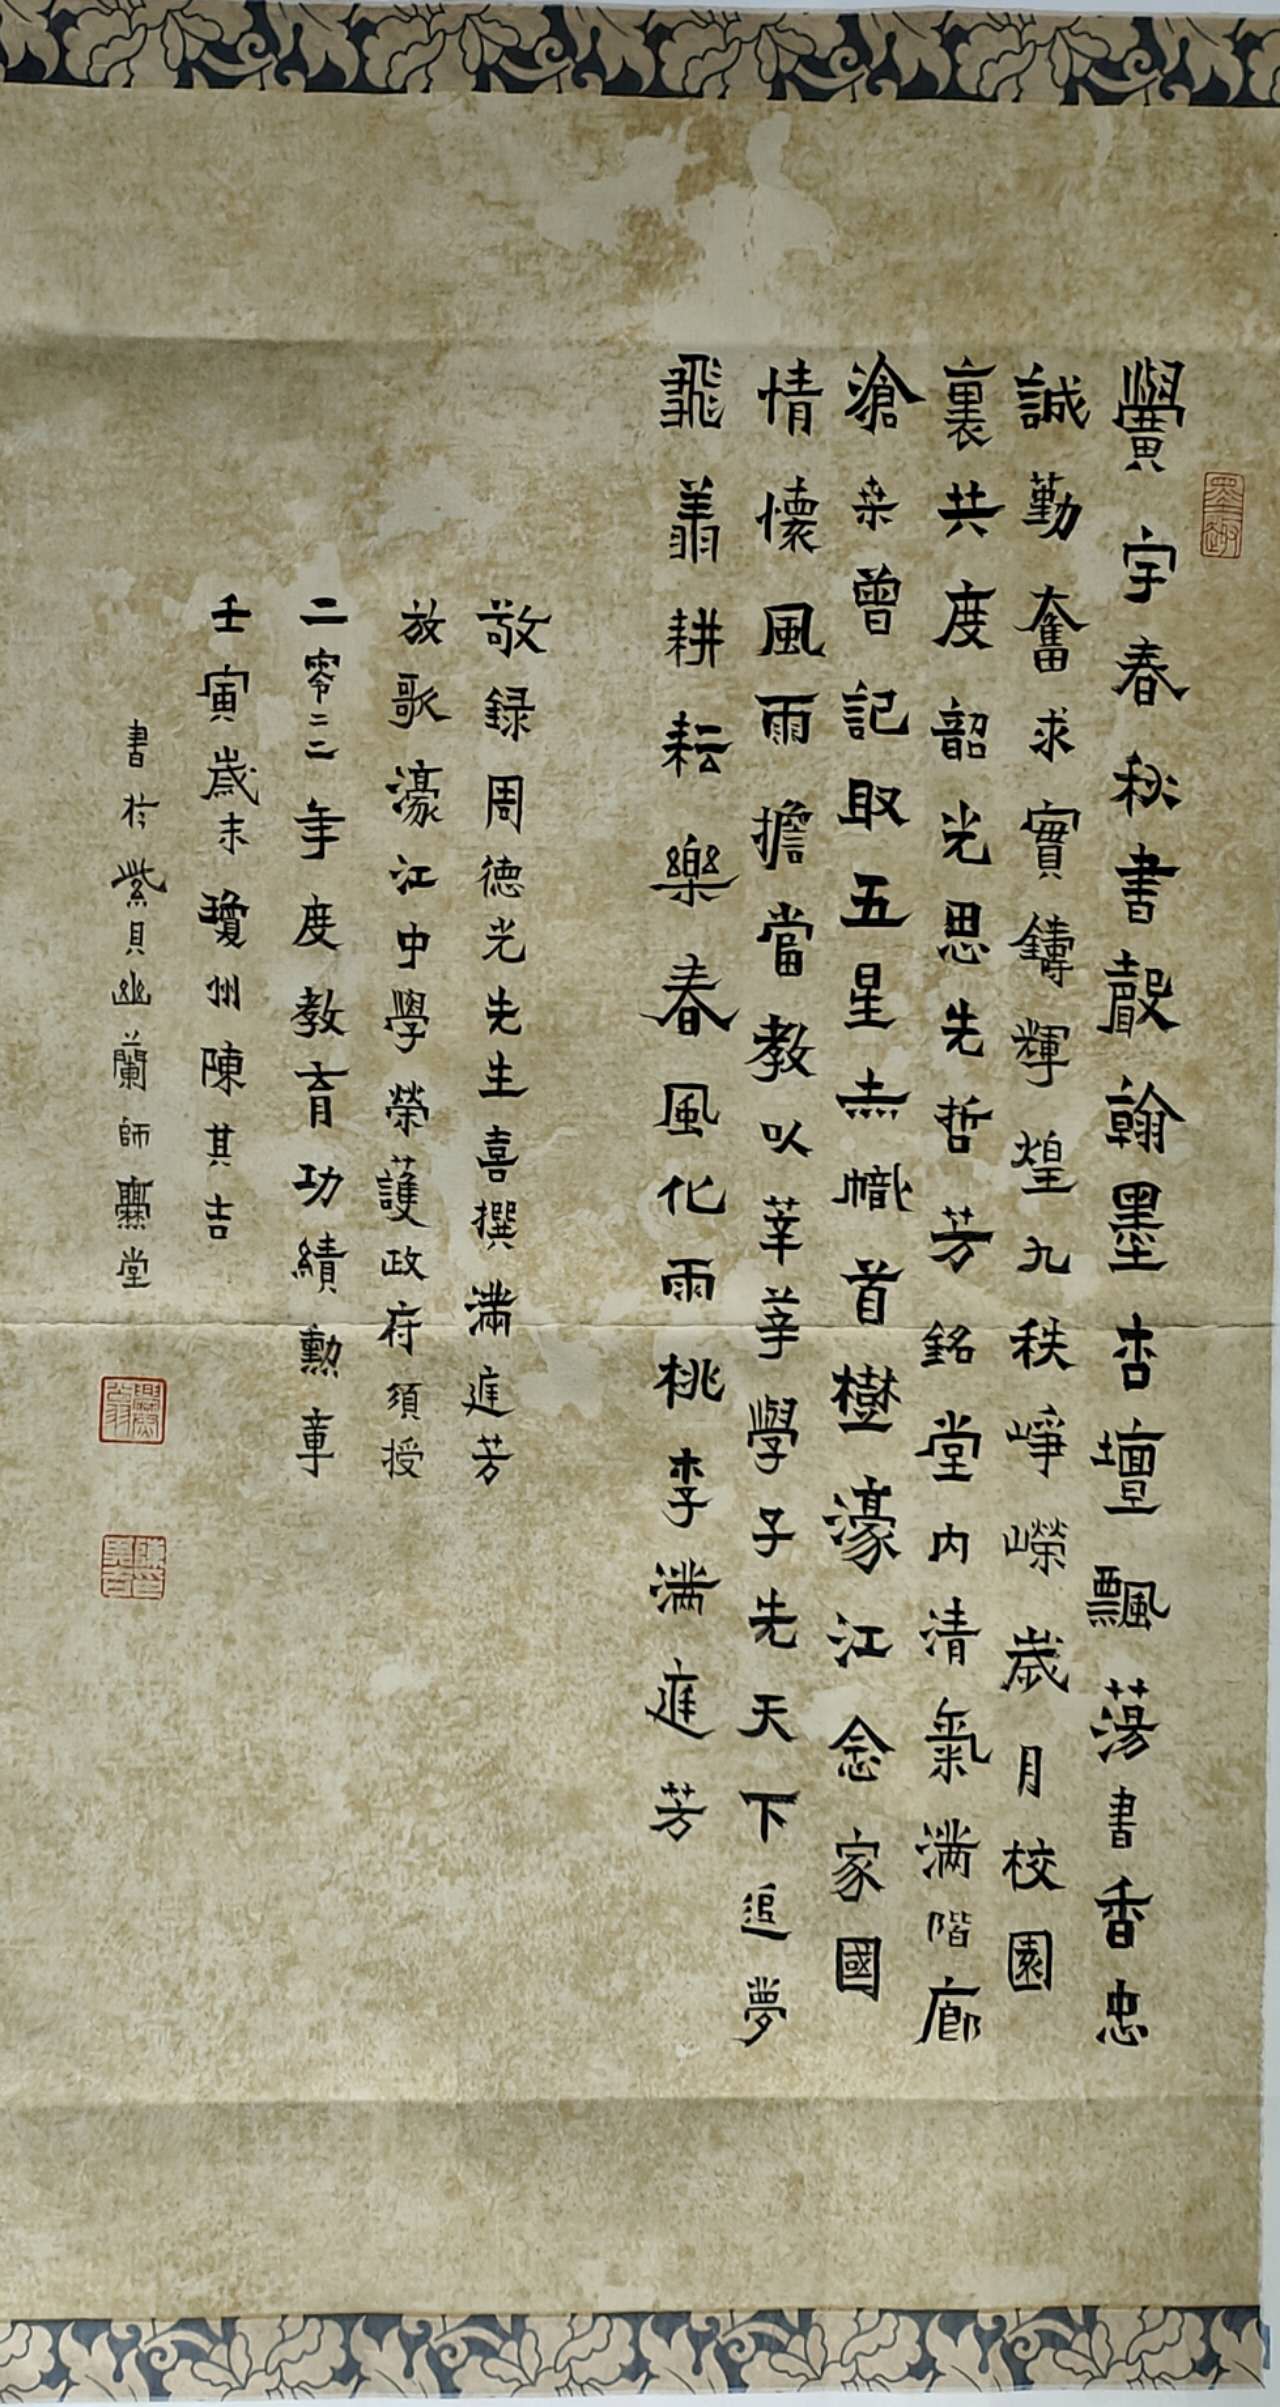 黌宇春秋書聲翰墨杏壇飄蕩書香忠
誠勤奮求實鑄輝煌九秩崢嶸歲月校園
裏共度韶光思先哲芳銘堂內清氣滿階廊
滄桑曾記取五星赤幟首樹濠江念家國
情懷風雨擔當教以莘莘學子先天下追夢
飛翥耕耘樂春風化雨桃李滿庭芳
敬録周德光先生喜撰滿庭芳
放歌濠江中學榮護政府須授
二零二二年度教育功績勳章
壬寅歲末瓊州陳其吉
書於紫貝幽蘭師爨堂